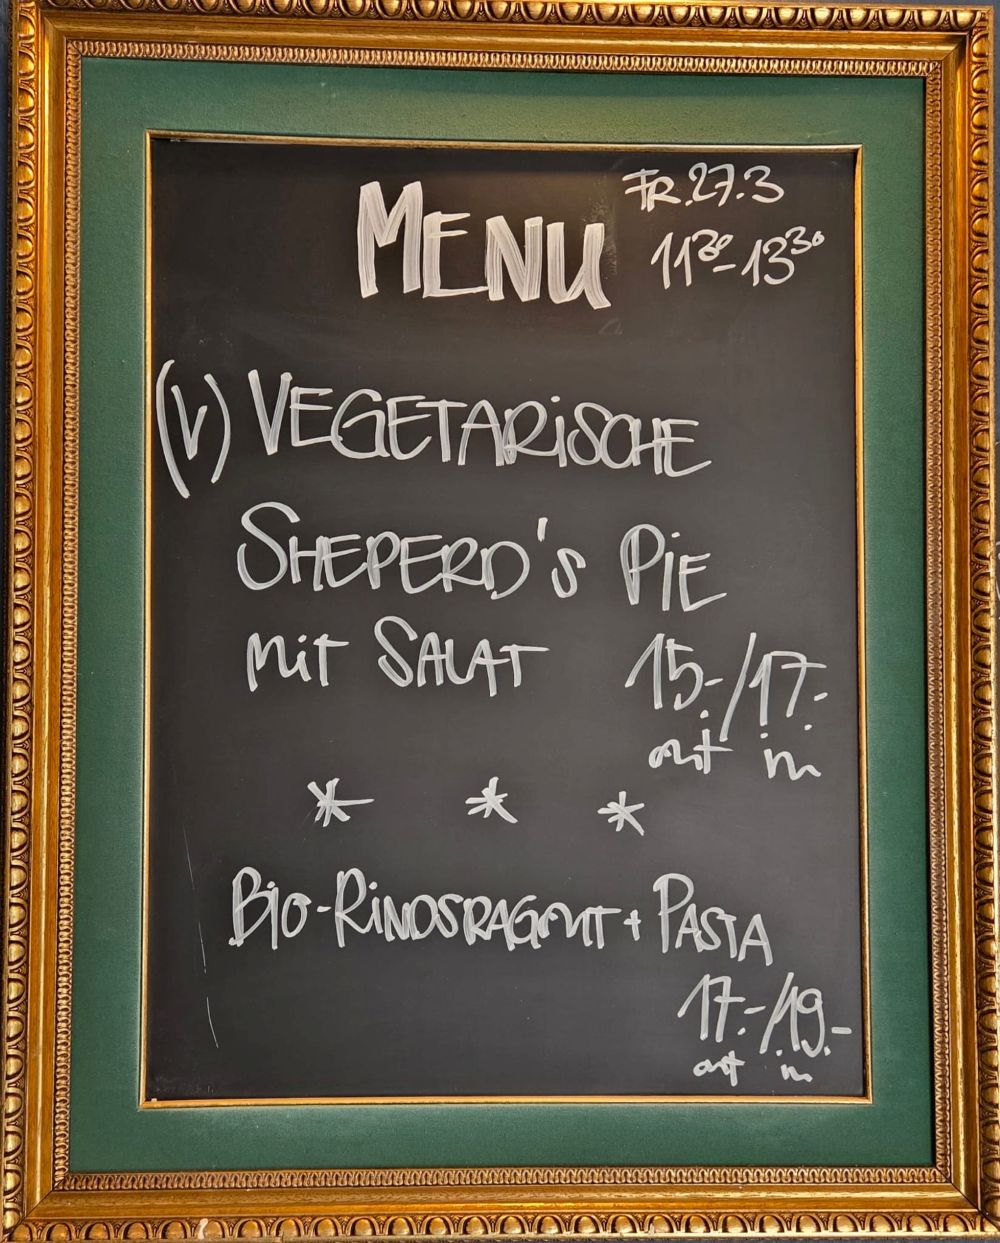 MENU
FR. 27.3
11³⁰-13³⁰
(V) VEGETARISCHE
SHEPERD'S PIE
MIT SALAT 15.-/17.-
out in
* * *
BIO-RINDSRAGOUT + PASTA
17.-/19.-
out in